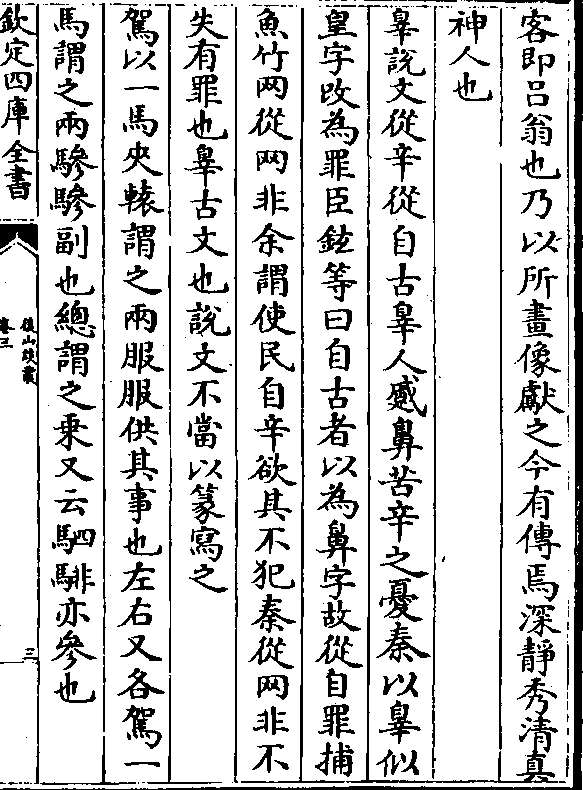 客即吕翁也乃以所畫像獻之今有傳焉深靜秀清真
神人也
辠說文從辛從自古辠人蹙鼻苦辛之憂秦以辠似
皇字改為罪臣鉉等曰自古者以為鼻字故從自罪捕
魚竹网從网非余謂使民自辛欲其不犯秦從网非不
失有罪也辠古文也說文不當以篆寫之
駕以一馬夾轅謂之兩服服供其事也左右又各駕一
馬謂之兩驂驂副也總謂之乘又云駟騑亦參也
欽定四庫全書
後山談叢
卷三
三